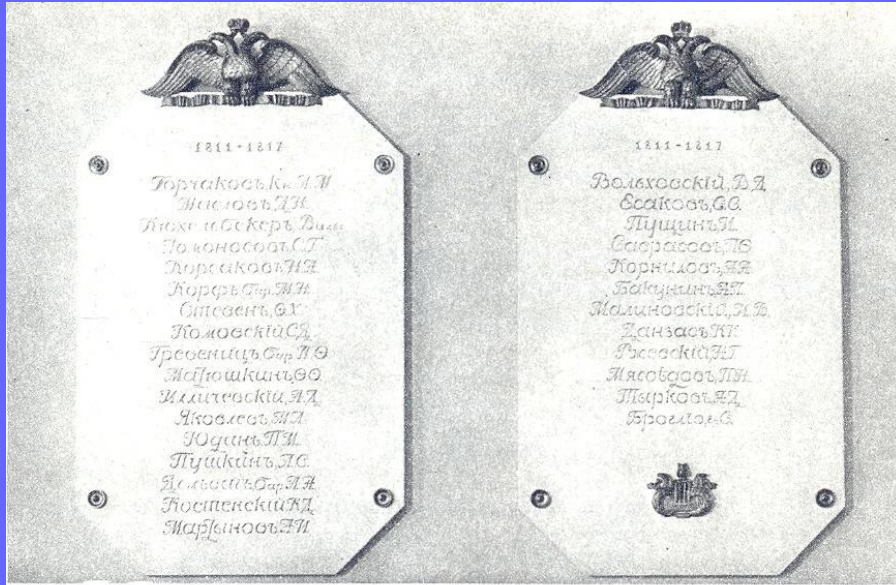 1811-1817
Горчаковъ Кн. А.М
Масловъ, Д.Н.
Кюхельбекеръ, Вильг.
Ломоносовъ С.Г
Корсаковъ Н.А
Корфъ бар. М.А.
Стевенъ, Ѳ.Х
Комовскій С.Д.
Гревеницъ бар. П.Ѳ
Матюшкинъ, Ѳ.Ѳ.
Илличевскій, А.Д.
Яковлевъ М.Л.
Юдинъ П.М.
Пушкинъ, А.С.
Дельвигъ бар. А.А.
Костенскій К.Д.
Мартыновъ А.И.
1811-1817
Вольховскій, В.Д.
Есаковъ, С.С.
Пущинъ И.
Саврасовъ, П.Ѳ.
Корниловъ, А.А.
Бакунинъ, А.П.
Малиновскій, И.В.
Данзасъ К.К.
Ржевскій Н.Г
Мясоѣдовъ, П.Н.
Тырковъ, А.Д.
Брогліо, С.